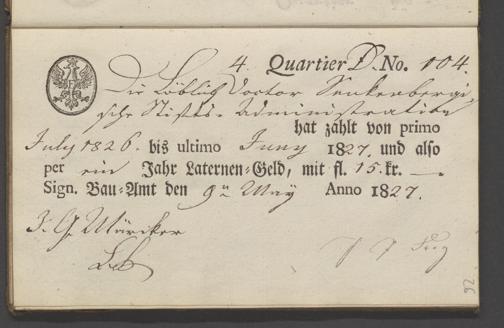 4. Quartier D. No. 104.
Die Löblich Doctor Senkenbergi-
sche Stifts-Administration
hat zahlt von primo
July 1826. bis ultimo Juny 1827. und also
per ein Jahr Laternen-Geld, mit fl. 15. kr. —
Sign. Bau-Amt den 9ⁿ May Anno 1827.
J. G. Märcker
92